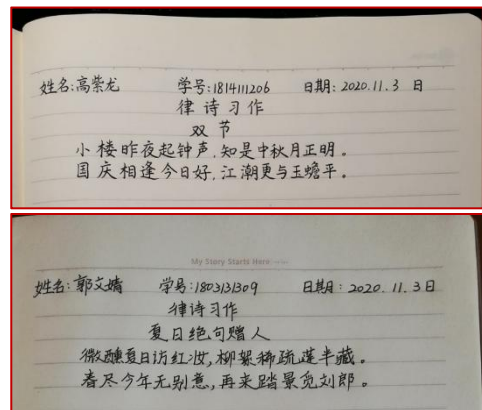 姓名:高紫龙 学号:1814111206 日期:2020.11.3 日
律诗习作
双节
小楼昨夜起钟声,知是中秋月正明。
国庆相逢今日好,江潮更与玉蟾平。
My Story Starts Here
姓名:郭文婧 学号:1803131309 日期:2020.11.3日
律诗习作
夏日绝句赠人
微醺夏日访红妆,柳絮稀疏莲半藏。
春尽今年无别意,再来踏景觅刘郎。